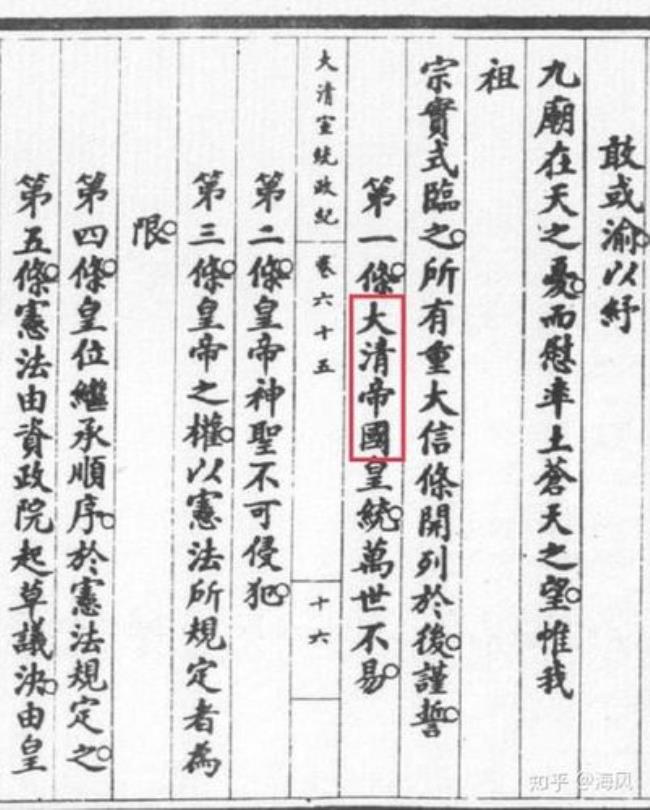 敢或渝以紓
九廟在天之憂而慰率土蒼天之望惟我
祖
宗實式臨之所有重大信條開列於後謹誓
第一條大清帝國皇統萬世不易
大清宣統政紀 卷六十五 十六
第二條皇帝神聖不可侵犯
第三條皇帝之權以憲法所規定者為
限
第四條皇位繼承順序於憲法規定之
第五條憲法由資政院起草議決由皇
知乎 @海风